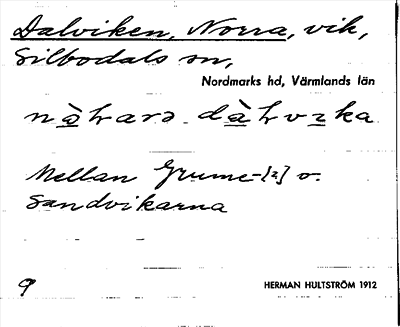 Dalviken, Norra, vik,
Silbodals sn,
Nordmarks hd, Värmlands län
Mellan Grume-[2] o.
Sandvikarna
9
HERMAN HULTSTRÖM 1912